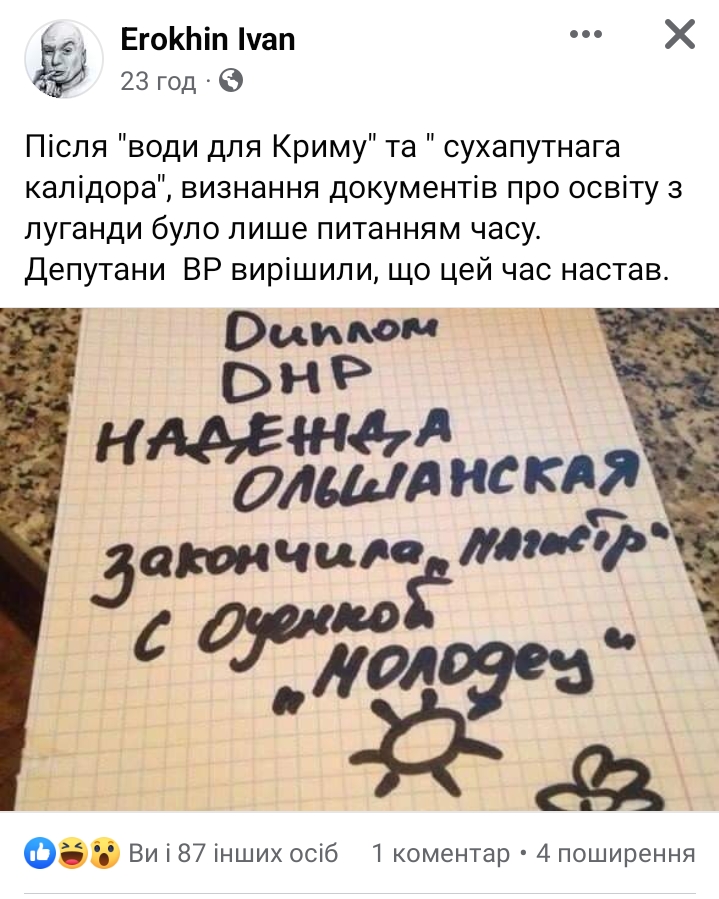 Erokhin Ivan
23 год ·
Після "води для Криму" та " сухапутнага
калідора", визнання документів про освіту з
луганди було лише питанням часу.
Депутани ВР вирішили, що цей час настав.
Диплом
DНР
НАДЕЖДА
ОЛЬШАНСКАЯ
Закончила „Магистр“
с Оценкой
„Молодец“
Ви і 87 інших осіб 1 коментар • 4 поширення